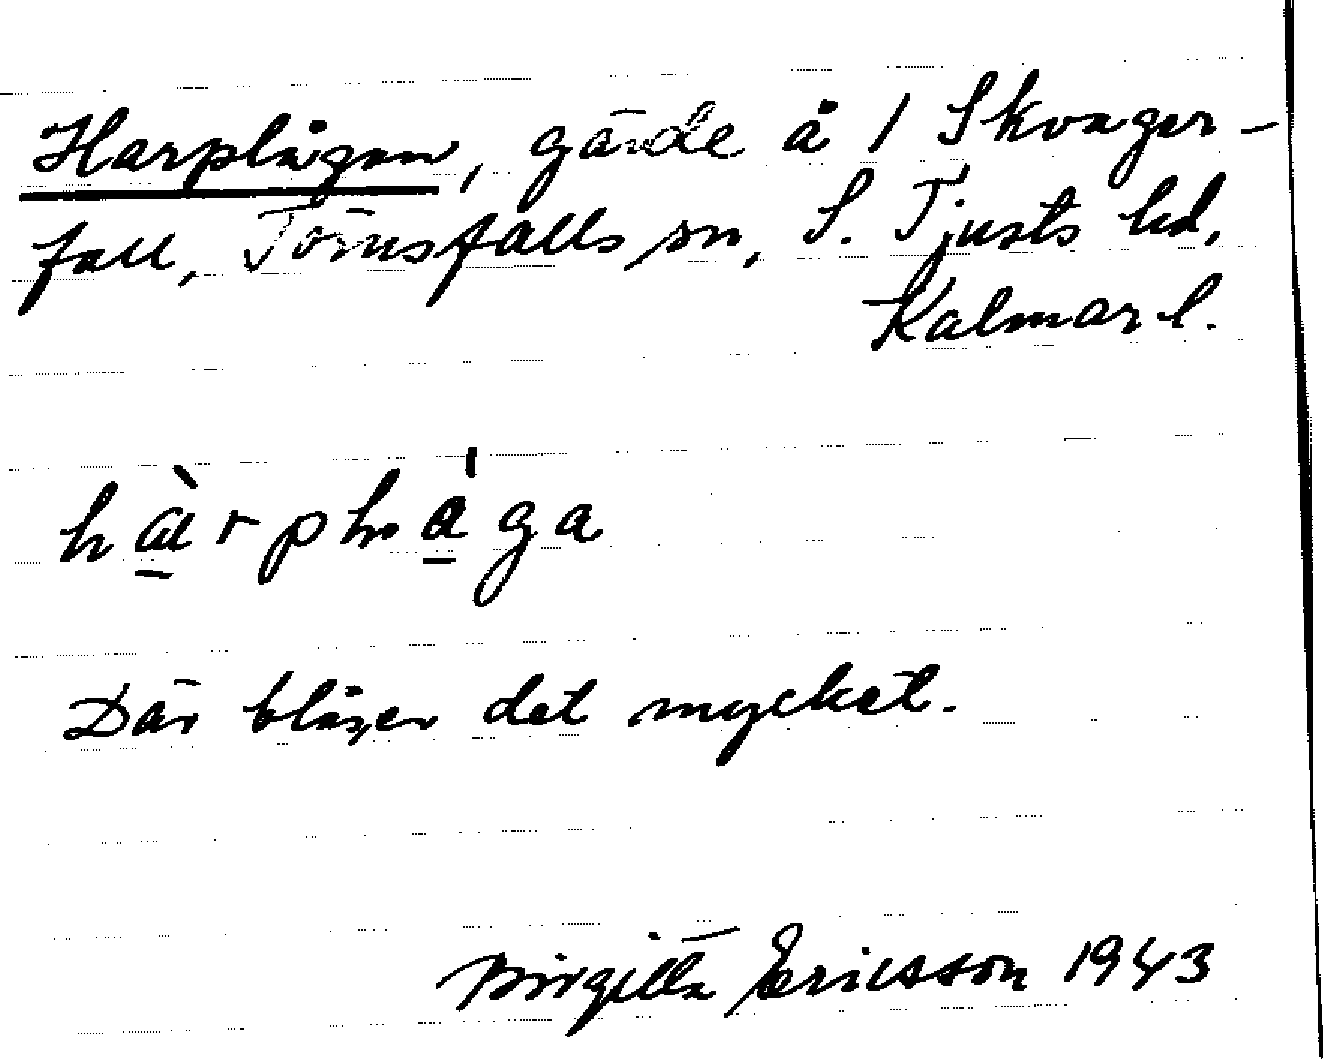 Harplågan, gärde å 1 Skvager-
fall, Törnsfalls sn, S. Tjusts hd,
Kalmar l.
Där blåser det mycket.
Birgitta Ericsson 1943